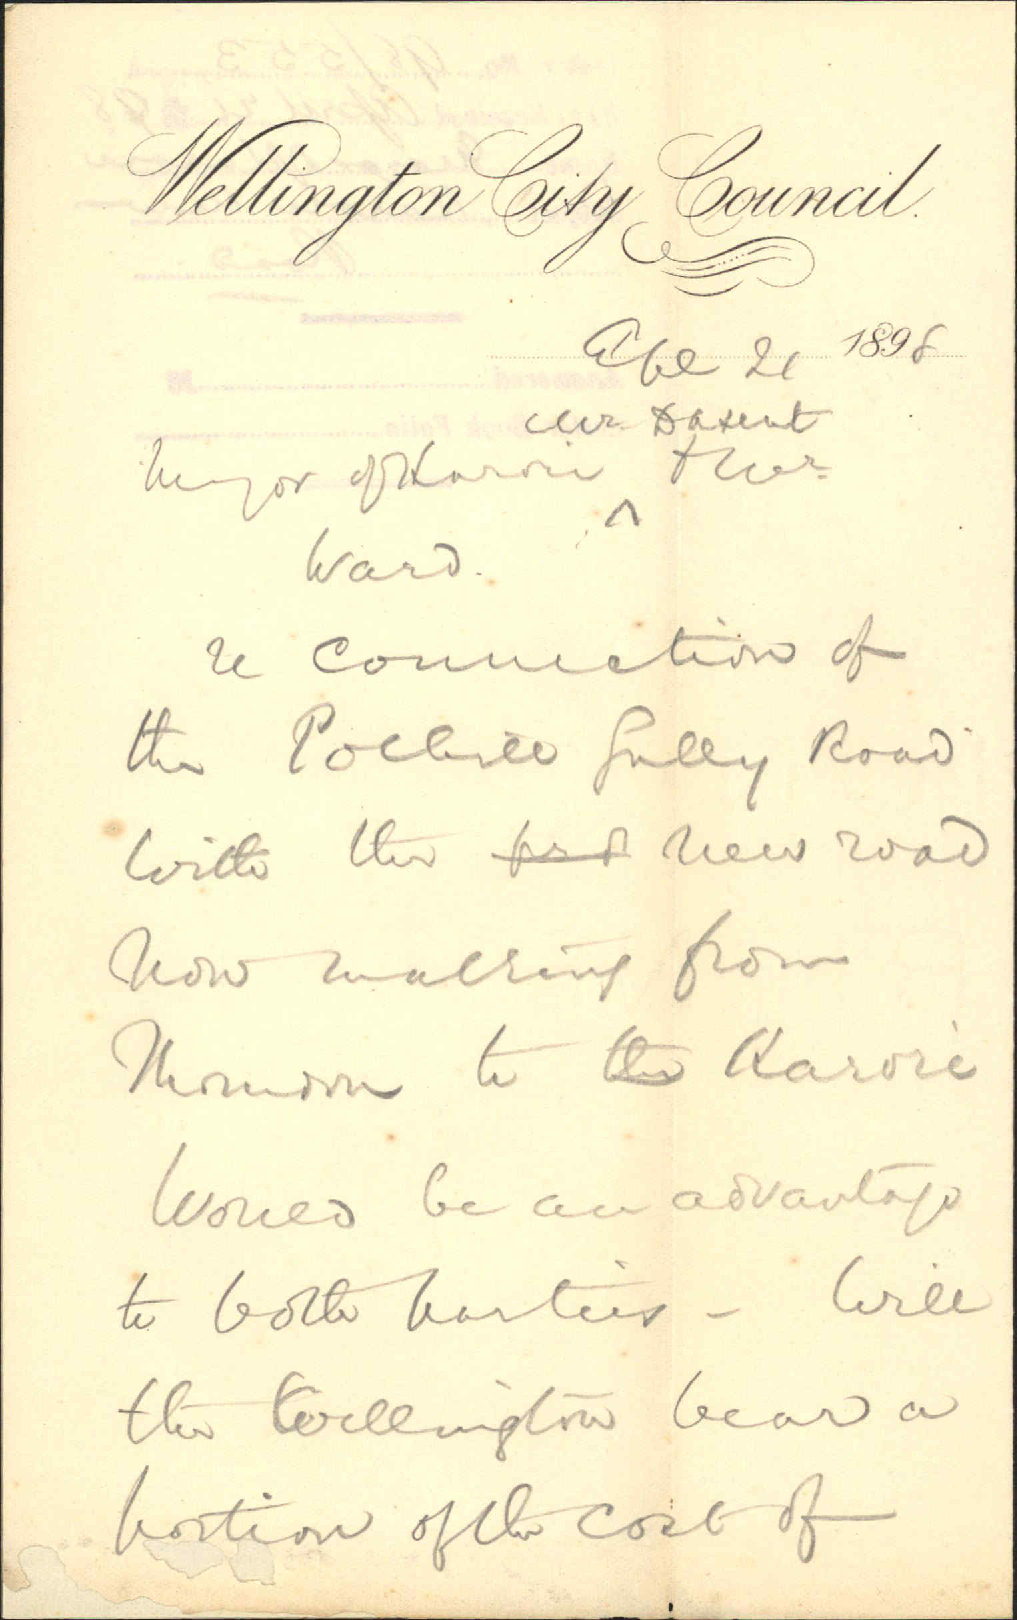 Wellington City Council.
Apl 21 1898
Mr Dasent
Mayor of Karori ^ & Mr
Ward.
re connection of
the Polhill Gully Road
with the prd new road
now making from
Thorndon to the Karori
Would be an advantage
to both parties - Will
the Wellington bear a
portion of the cost of